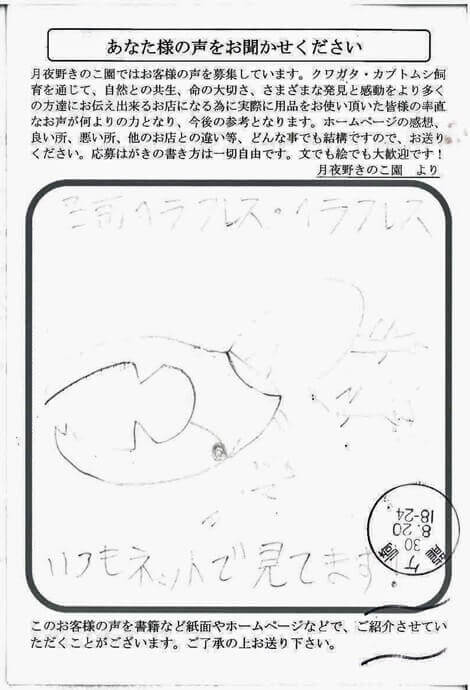 あなた様の声をお聞かせください
月夜野きのこ園ではお客様の声を募集しています。クワガタ・カブトムシ飼
育を通じて、自然との共生、命の大切さ、さまざまな発見と感動をより多く
の方達にお伝え出来るお店になる為に実際に用品をお使い頂いた皆様の率直
なお声が何よりの力となり、今後の参考となります。ホームページの感想、
良い所、悪い所、他のお店との違い等、どんな事でも結構ですので、お送り
ください。応募はがきの書き方は一切自由です。文でも絵でも大歓迎です！
月夜野きのこ園　より
ヘラクレス・ヘラクレス
いつもネットで見てます！
30
8.20
18-24
このお客様の声を書籍など紙面やホームページなどで、ご紹介させてい
ただくことがございます。ご了承の上お送り下さい。